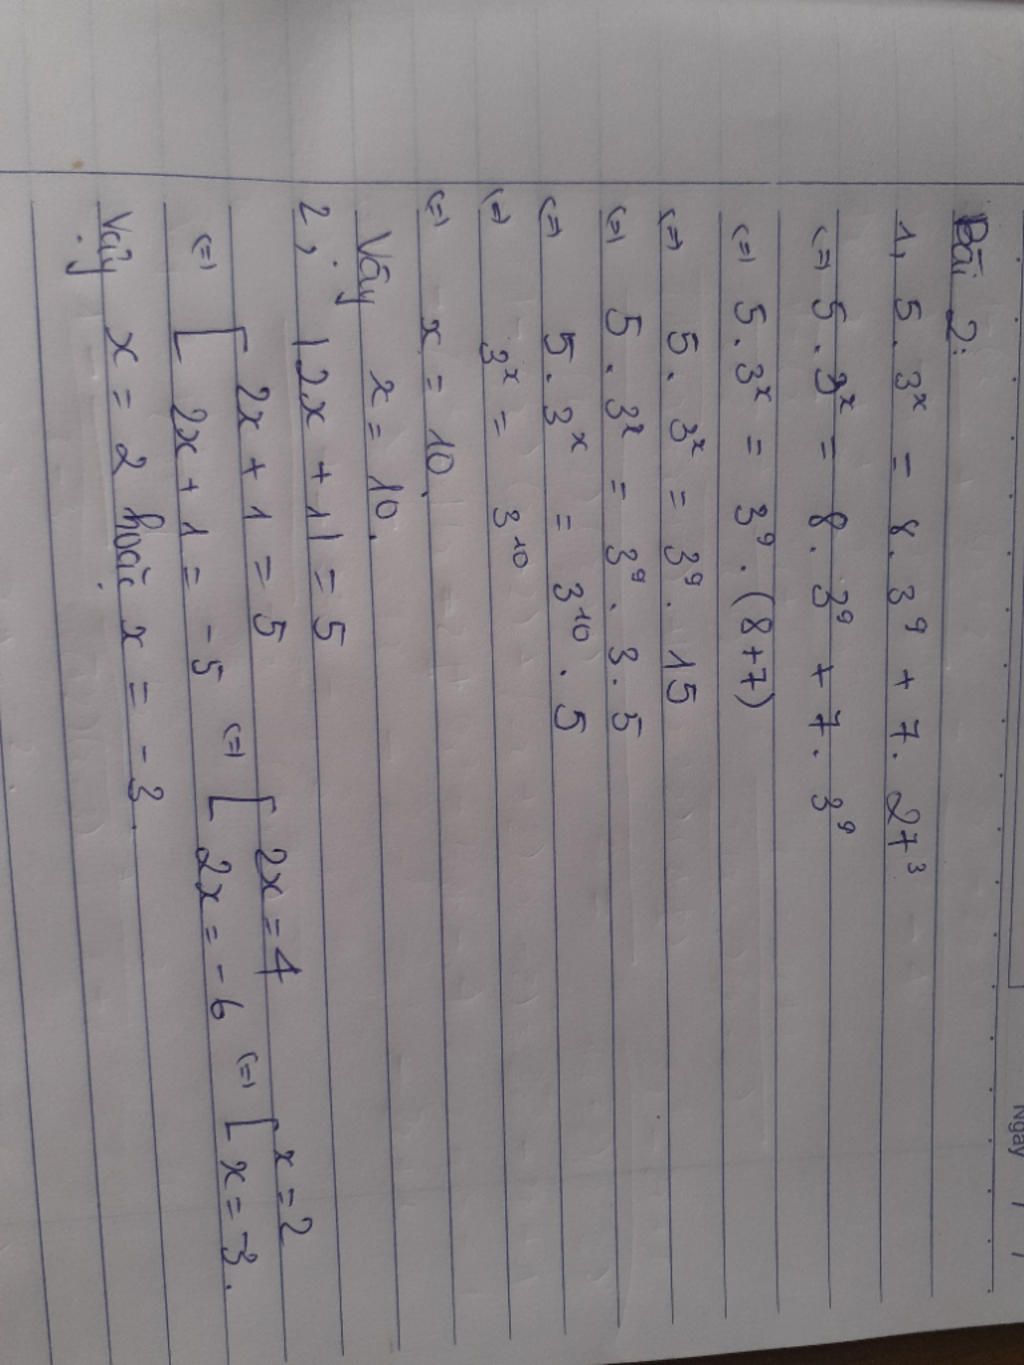 Ngày / /
Bài 2:
1, 5 . 3ˣ = 8 . 3⁹ + 7 . 27³
(=) 5 . 3ˣ = 8 . 3⁹ + 7 . 3⁹
(=) 5 . 3ˣ = 3⁹ . (8+7)
(=) 5 . 3ˣ = 3⁹ . 15
(=) 5 . 3ˣ = 3⁹ . 3 . 5
(=) 5 . 3ˣ = 3¹⁰ . 5
(=) 3ˣ = 3¹⁰
(=) x = 10.
Vậy x = 10.
2, |2x + 1| = 5
(=) [ 2x + 1 = 5 (=) [ 2x = 4 (=) [ x = 2
2x + 1 = -5 2x = -6 x = -3.
Vậy x = 2 hoặc x = -3.